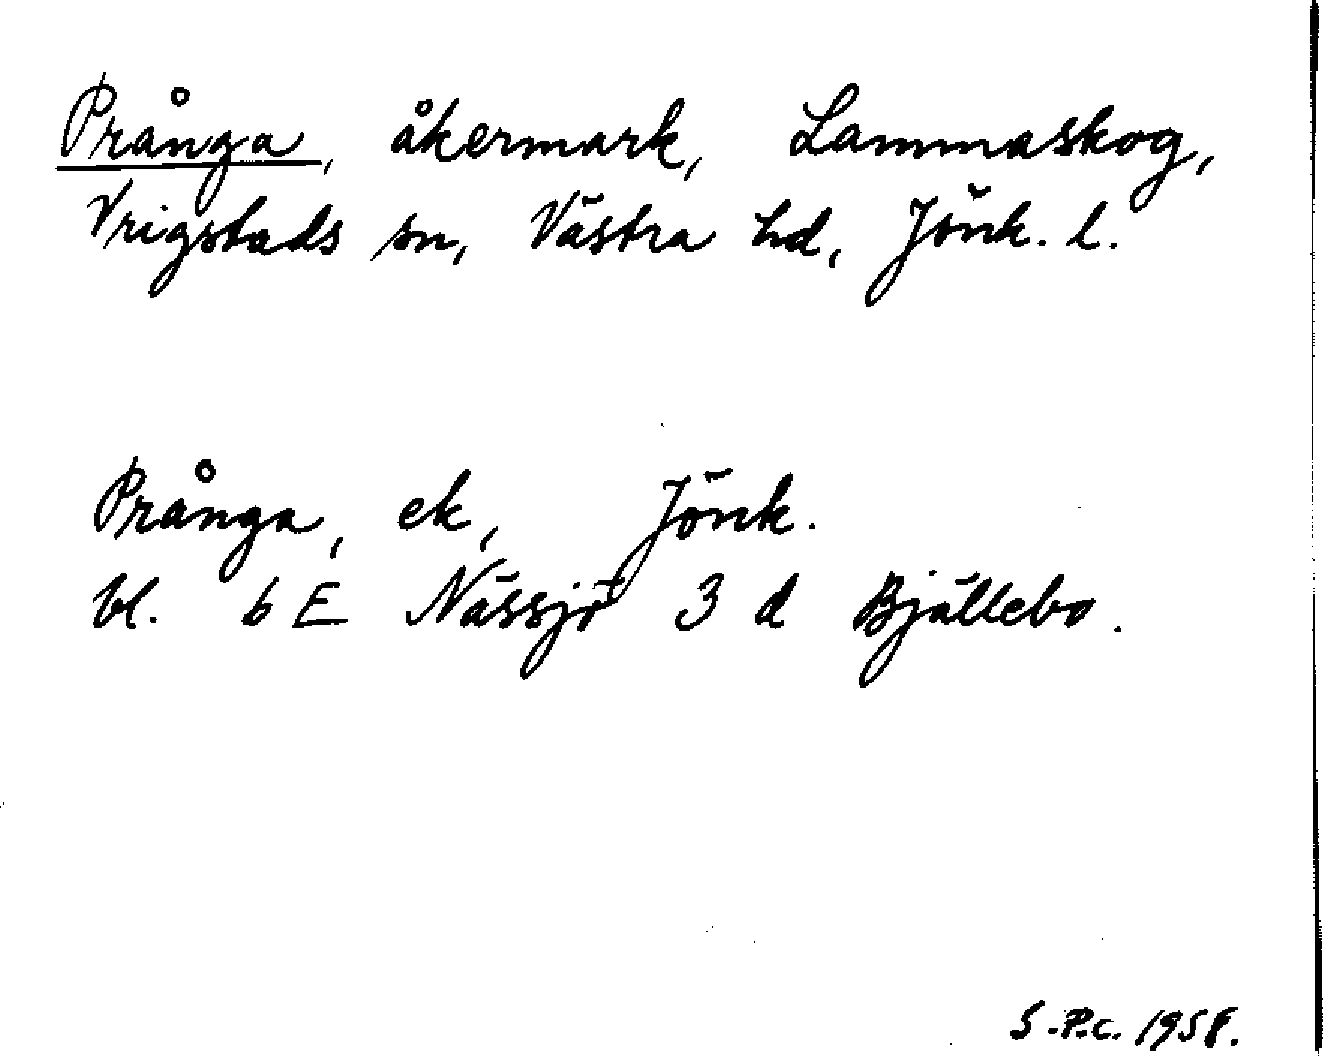 Prånga, åkermark, Lammaskog,
Vrigstads sn, Västra hd, Jönk. l.
Prånga, ek, Jönk.
bl. 6 E Nässjö 3 d Bjällebo.
S.P.C. 1958.